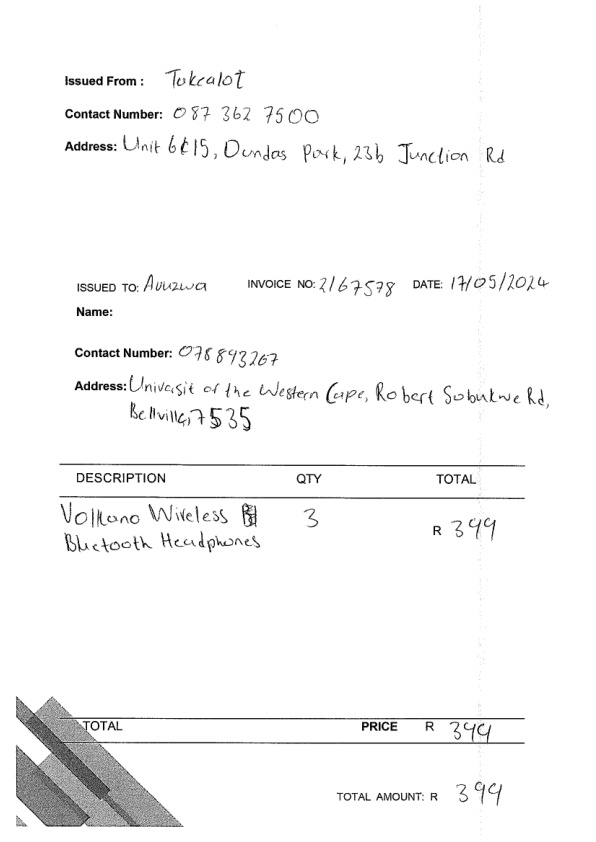 Issued From : Tukealot
Contact Number: 087 362 7500
Address: Unit 6&15, Dundas Park, 23b Junction Rd
ISSUED TO: Avuzwa INVOICE NO: 2167578 DATE: 17/05/2024
Name:
Contact Number: 078893267
Address: Univasit of the Western Cape, Robert Sobukwe Rd,
Bellville, 7535
DESCRIPTION QTY TOTAL
Volkano Wireless 3 R 399
Bluetooth Headphones
TOTAL PRICE R 399
TOTAL AMOUNT: R 399